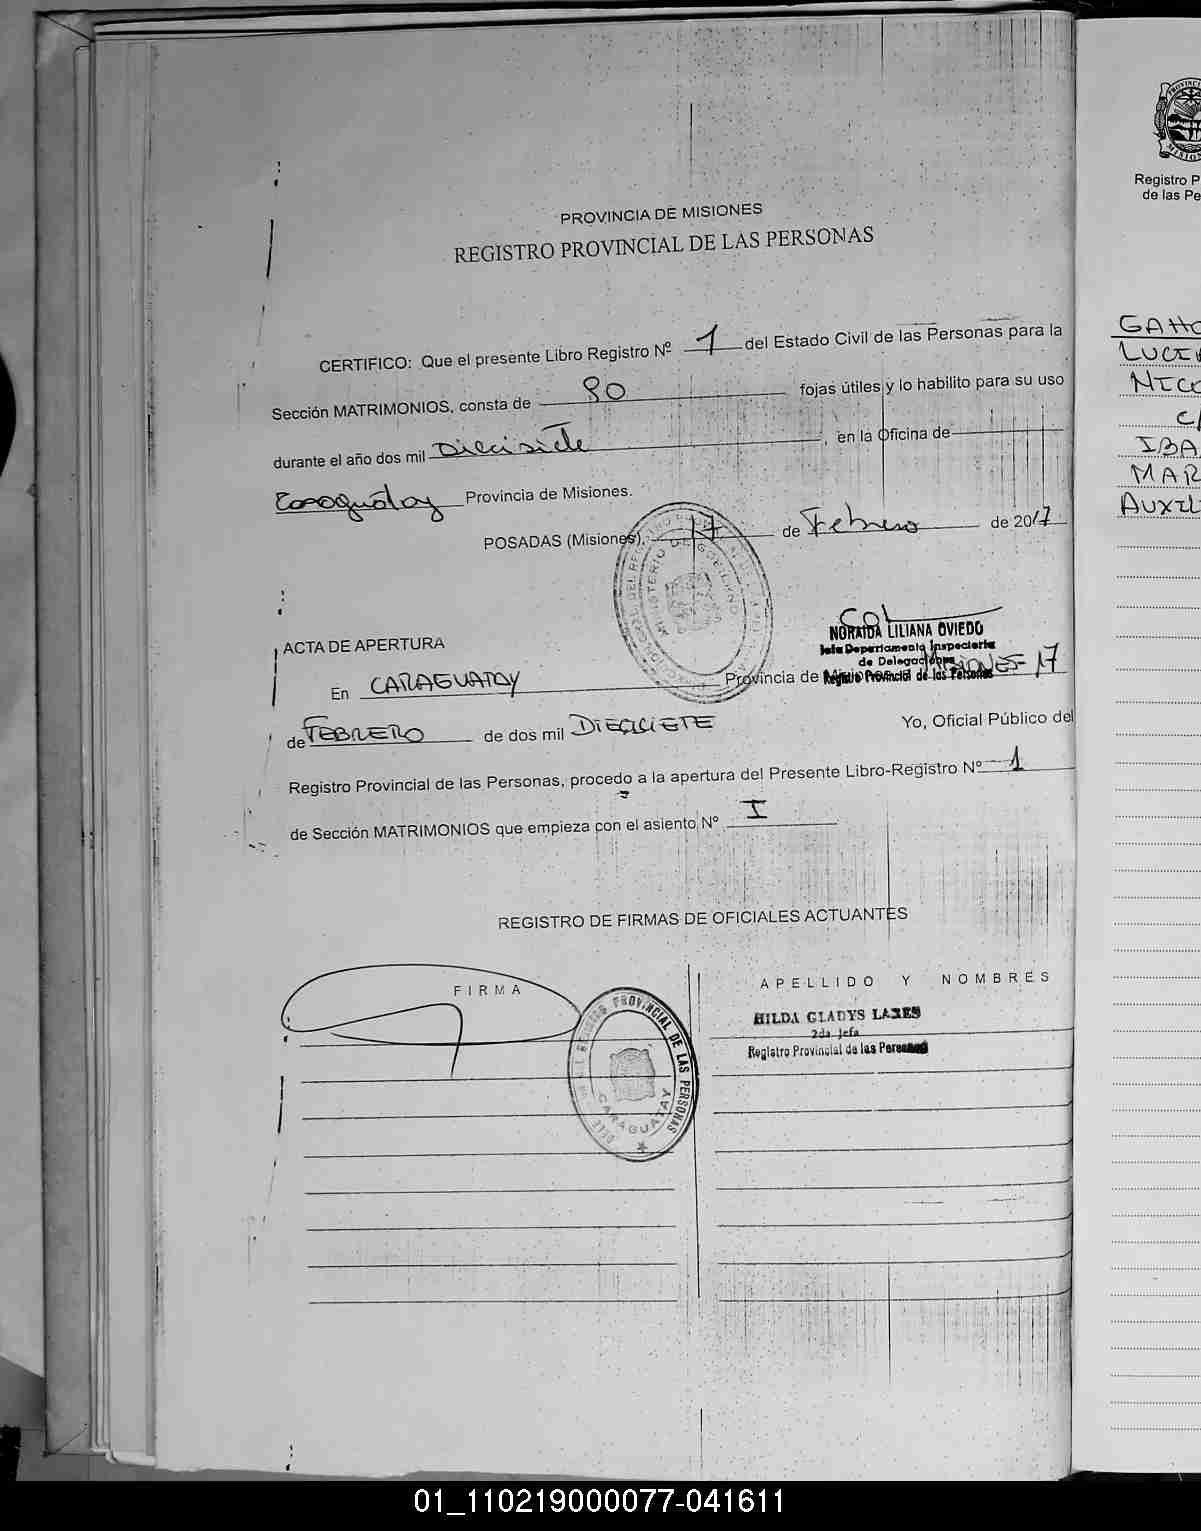 PROVINCIA DE MISIONES
REGISTRO PROVINCIAL DE LAS PERSONAS
CERTIFICO: Que el presente Libro Registro Nº 1 del Estado Civil de las Personas para la
Sección MATRIMONIOS, consta de 90 fojas útiles y lo habilito para su uso
durante el año dos mil Diecisiete, en la Oficina de
Caraguatay Provincia de Misiones.
POSADAS (Misiones), 17 de Febrero de 2017
MINISTERIO DE GOBIERNO
NORAIDA LILIANA OVIEDO
Jefa Departamento Inspectoria
de Delegaciones
Registro Provincial de las Personas
ACTA DE APERTURA
En CARAGUATAY Provincia de MISIONES- 17
de FEBRERO de dos mil DIECICIETE Yo, Oficial Público del
Registro Provincial de las Personas, procedo a la apertura del Presente Libro-Registro Nº 1
de Sección MATRIMONIOS que empieza con el asiento Nº I
REGISTRO DE FIRMAS DE OFICIALES ACTUANTES
FIRMA
APELLIDO Y NOMBRES
REGISTRO PROVINCIAL DE LAS PERSONAS
CARAGUATAY
HILDA GLADYS LARES
2da Jefa
Registro Provincial de las Personas
Registro P
de las Pe
LUCI
NICO
IBA
MAR
AUXIL
01_110219000077-041611